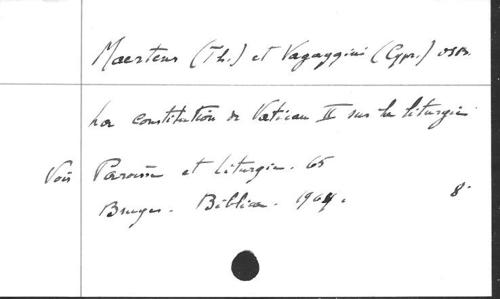 Maertens (Th.) et Vagaggini (Cypr.) OSB.
La constitution de Vatican II sur la liturgie
Voir Paroisse et Liturgie. 65
Bruges. Biblica. 1964. 8°